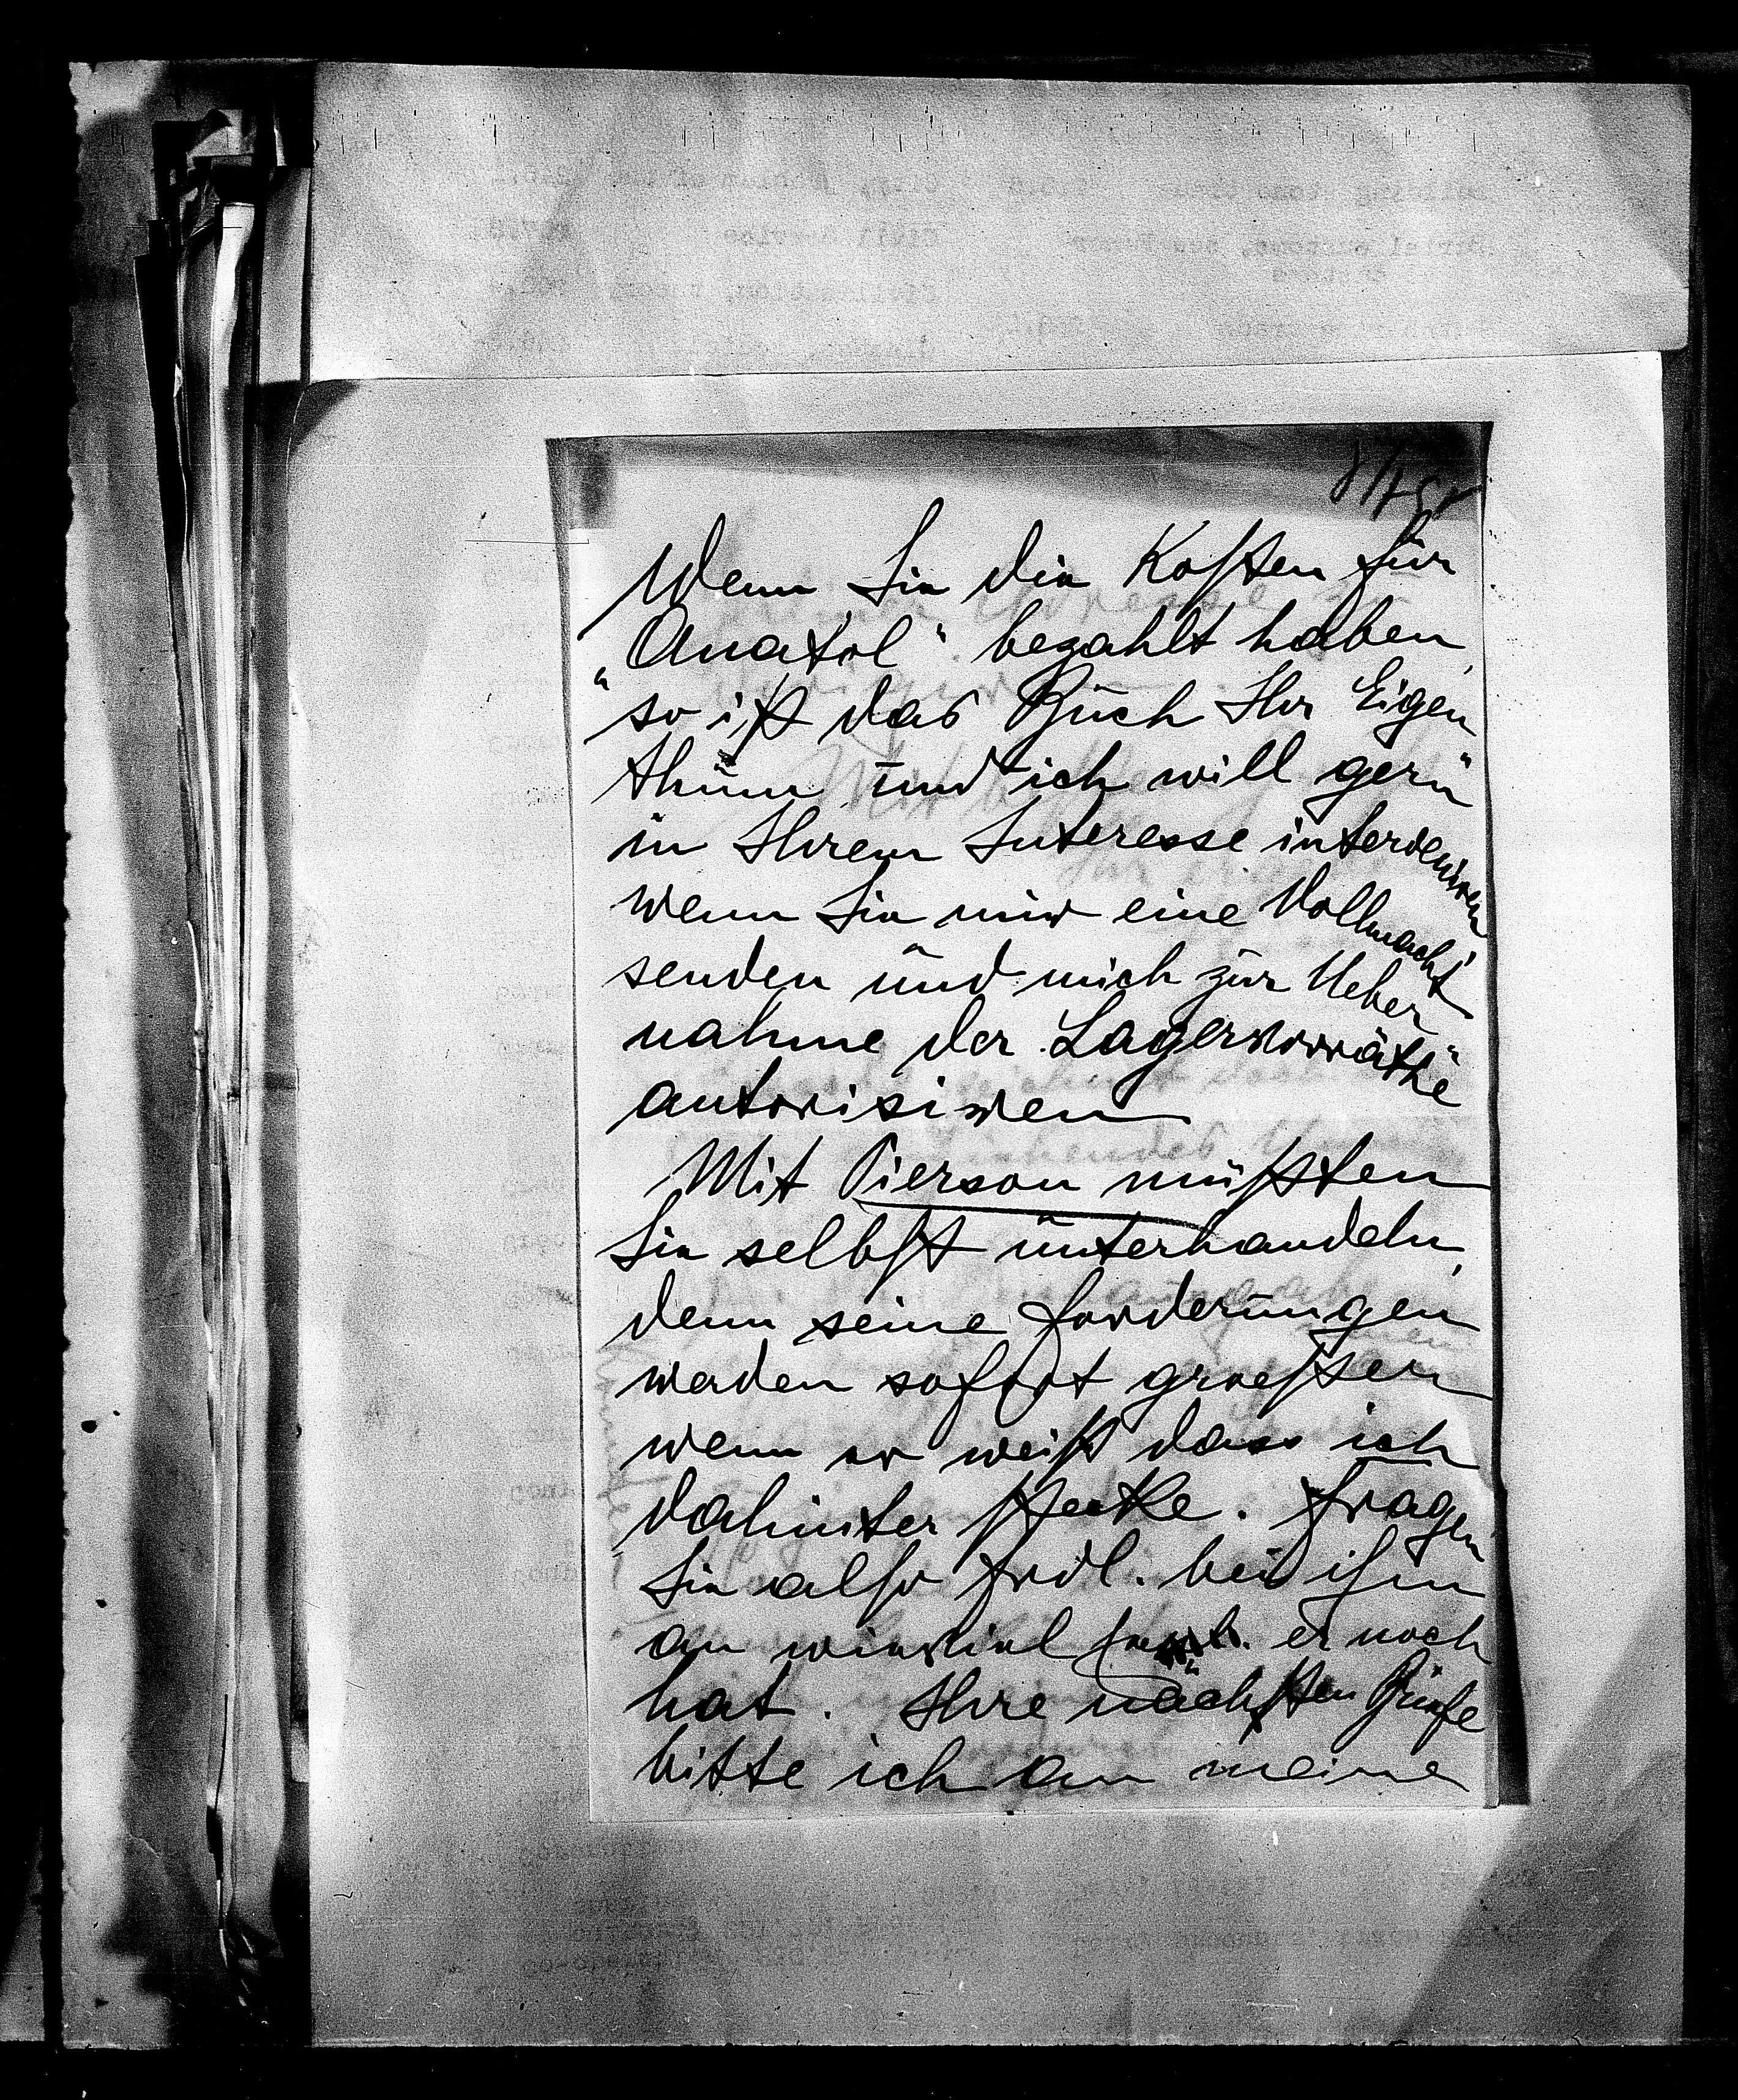 Wenn Sie die Kosten für
„Anatol“ bezahlt haben,
so ist das Buch Ihr Eigen
thum und ich will gern
in Ihrem Interesse interveniren
wenn Sie mir eine Vollmacht
senden und mich zur Ueber
nahme der Lagervorräthe
autorisiren
Mit Pierson müßten
Sie selbst unterhandeln,
denn seine Forderungen
werden sofort groesser
wenn er weiß dass ich
dahinter stecke. Fragen
Sie also frdl. bei ihm
an wieviel er noch
hat. Ihre nächsten Briefe
bitte ich an meine